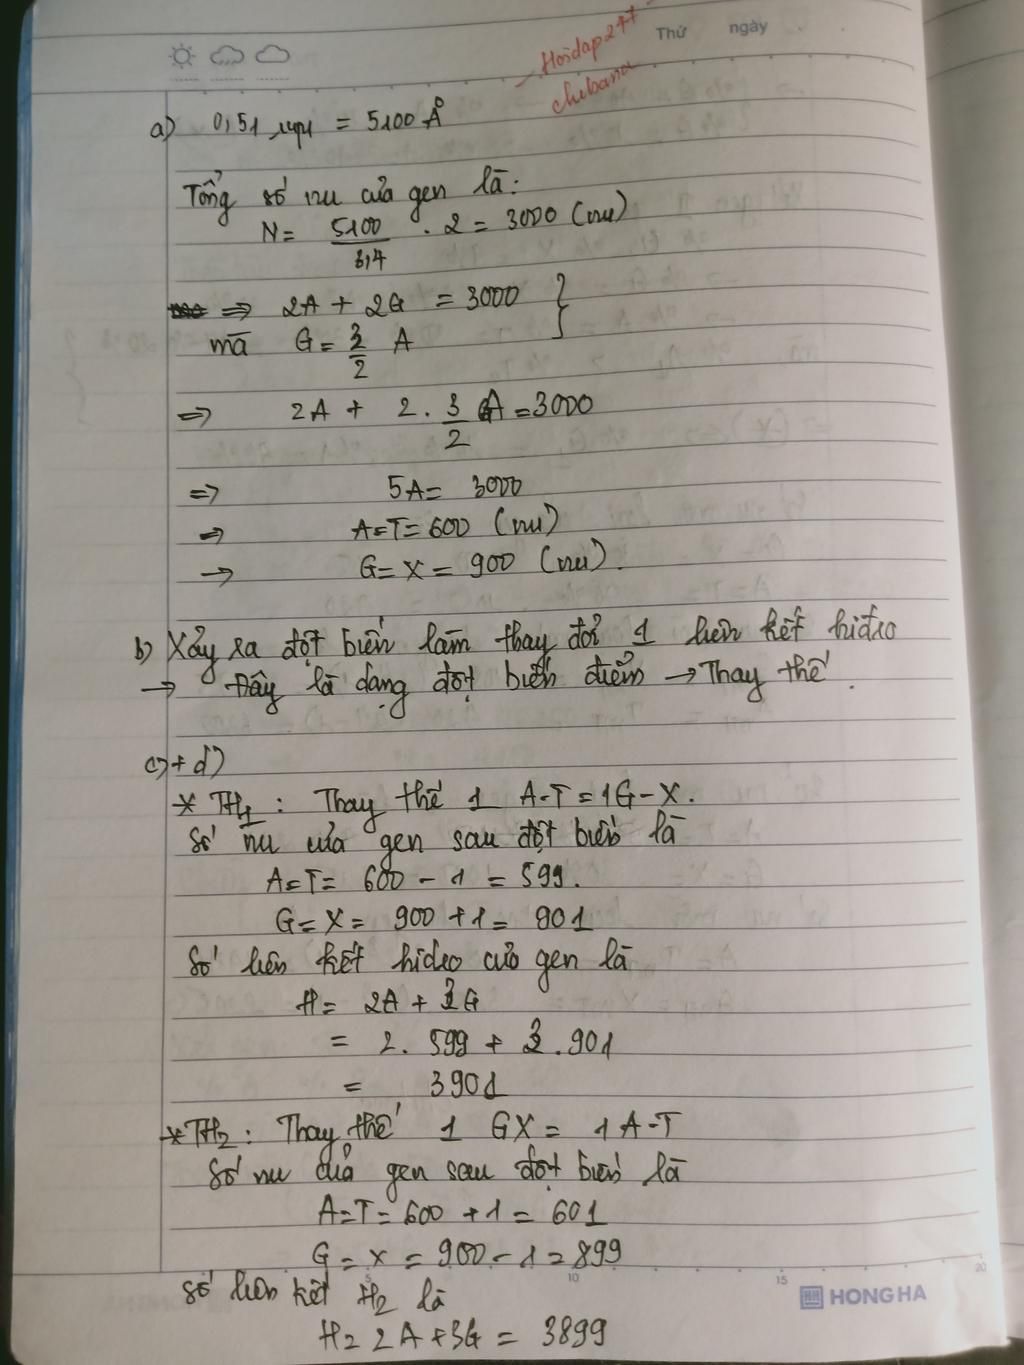 Thứ ngày
Hoidap247
chibana
a) 0,51 µm = 5100 Å
Tổng số nu của gen là:
N = 5100/3,4 . 2 = 3000 (nu)
=> 2A + 2G = 3000 }
mà G = 3/2 A
=> 2A + 2. 3/2 A = 3000
=> 5A = 3000
=> A=T=600 (nu)
→ G=X=900 (nu).
b) Xảy ra đột biến làm thay đổi 1 liên kết hiđro
→ Đây là dạng đột biến điểm → Thay thế.
c)+d)
* TH1: Thay thế 1 A-T=1G-X.
Số nu của gen sau đột biến là
A=T= 600 - 1 = 599.
G=X= 900 +1= 901
Số liên kết hidro của gen là
H= 2A + 3G
= 2. 599 + 3.901
= 3901
* TH2: Thay thế 1 GX = 1 A-T
Số nu của gen sau đột biến là
A=T=600 +1= 601
G = X = 900-1=899
Số liên kết H2 là
5 10 15 20
HH HONG HA
H= 2A+3G = 3899